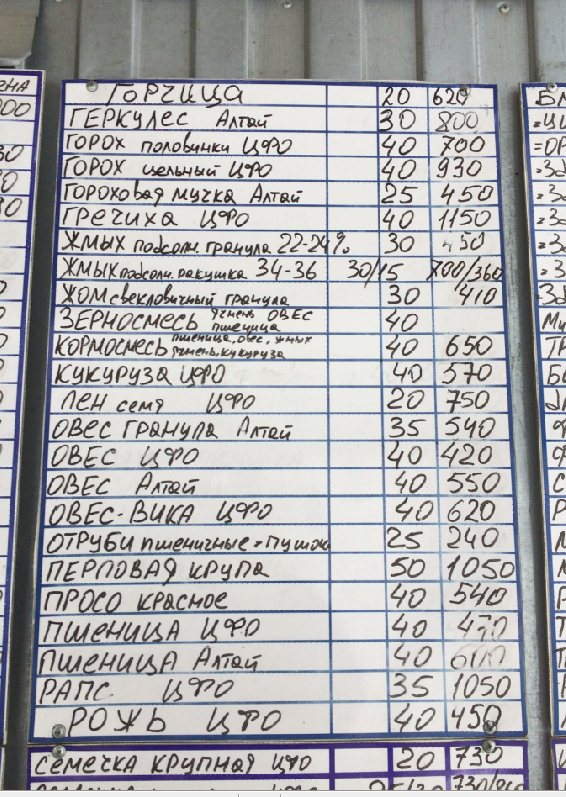 ГОРЧИЦА 20 620
ГЕРКУЛЕС Алтай 30 800
ГОРОХ половинки ЦФО 40 700
ГОРОХ цельный ЦФО 40 930
ГОРОХОВАЯ МУЧКА Алтай 25 450
ГРЕЧИХА ЦФО 40 1150
ЖМЫХ подсолн. гранула 22-24% 30 450
ЖМЫХ подсолн. ракушка 34-36 30/15 700/360
ЖОМ свекловичный гранула 30 410
ЗЕРНОСМЕСЬ ячмень ОВЕС пшеница 40
КОРМОСМЕСЬ пшеница, овес, жмых ячмень, кукуруза 40 650
КУКУРУЗА ЦФО 40 570
ЛЕН семя ЦФО 20 750
ОВЕС ГРАНУЛА Алтай 35 540
ОВЕС ЦФО 40 420
ОВЕС Алтай 40 550
ОВЕС-ВИКА ЦФО 40 620
ОТРУБИ пшеничные = пушок 25 240
ПЕРЛОВАЯ КРУПА 50 1050
ПРОСО КРАСНОЕ 40 540
ПШЕНИЦА ЦФО 40 470
ПШЕНИЦА Алтай 40 600
РАПС ЦФО 35 1050
РОЖЬ ЦФО 40 450
СЕМЕЧКА КРУПНАЯ ЦФО 20 730